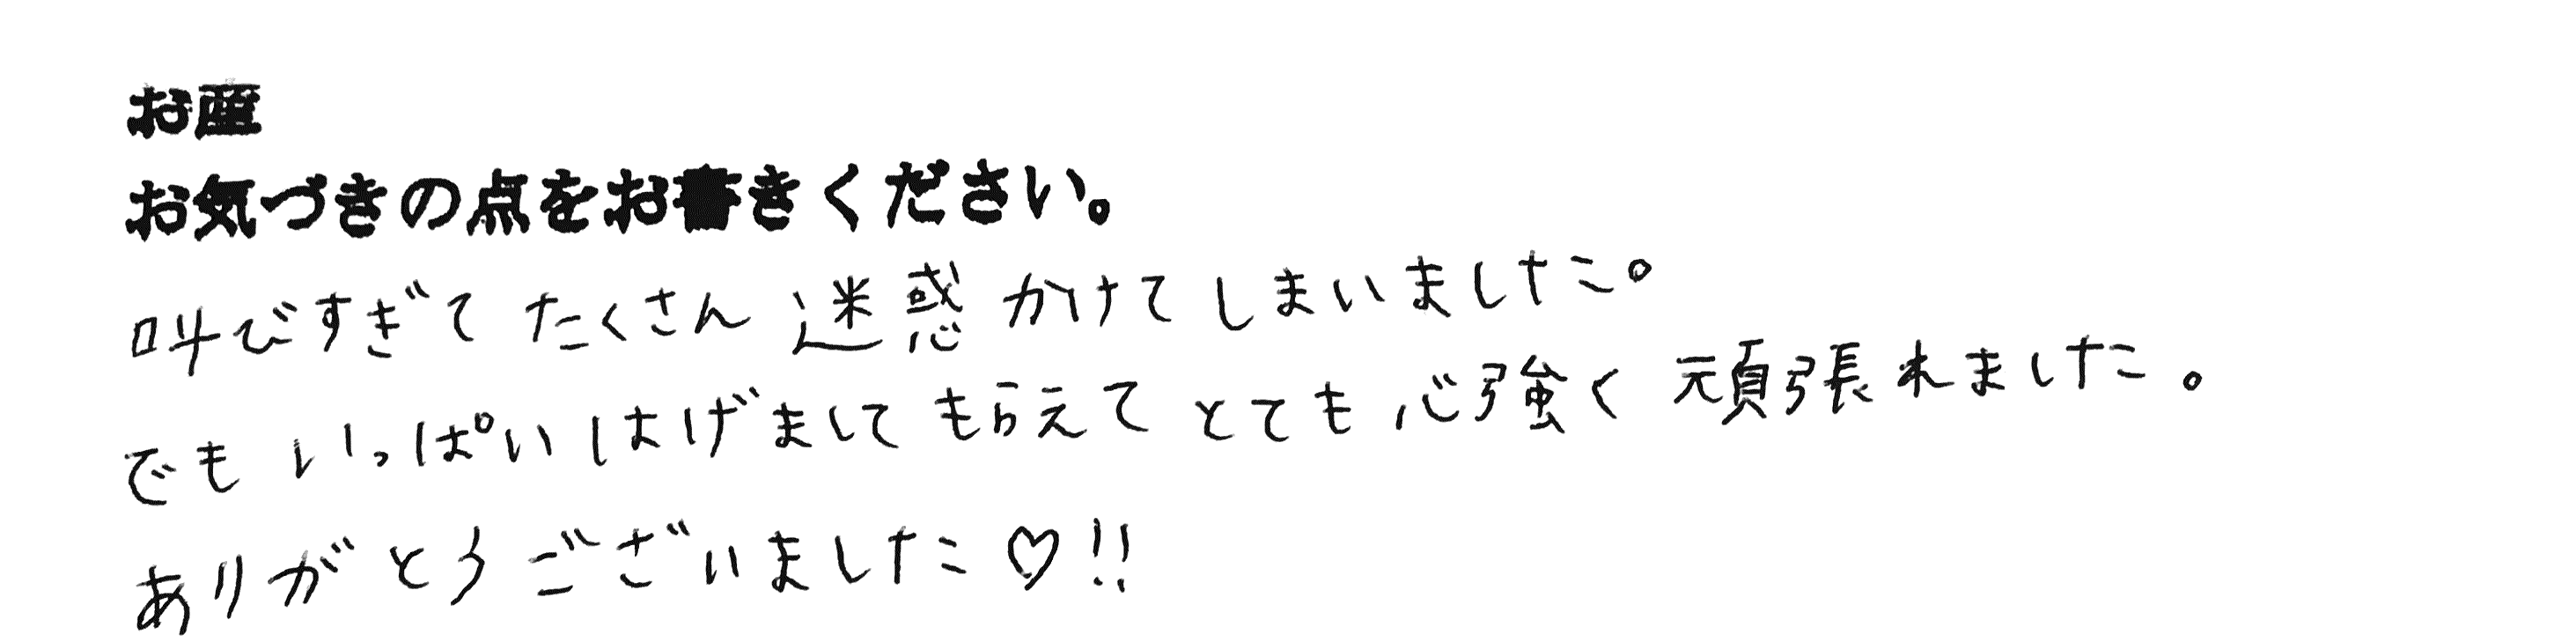 お産
お気づきの点をお書きください。
叫びすぎて たくさん 迷惑 かけて しまいました。
でも いっぱい はげまして もらえて とても 心強く 頑張れました。
ありがとう ございました♡!!